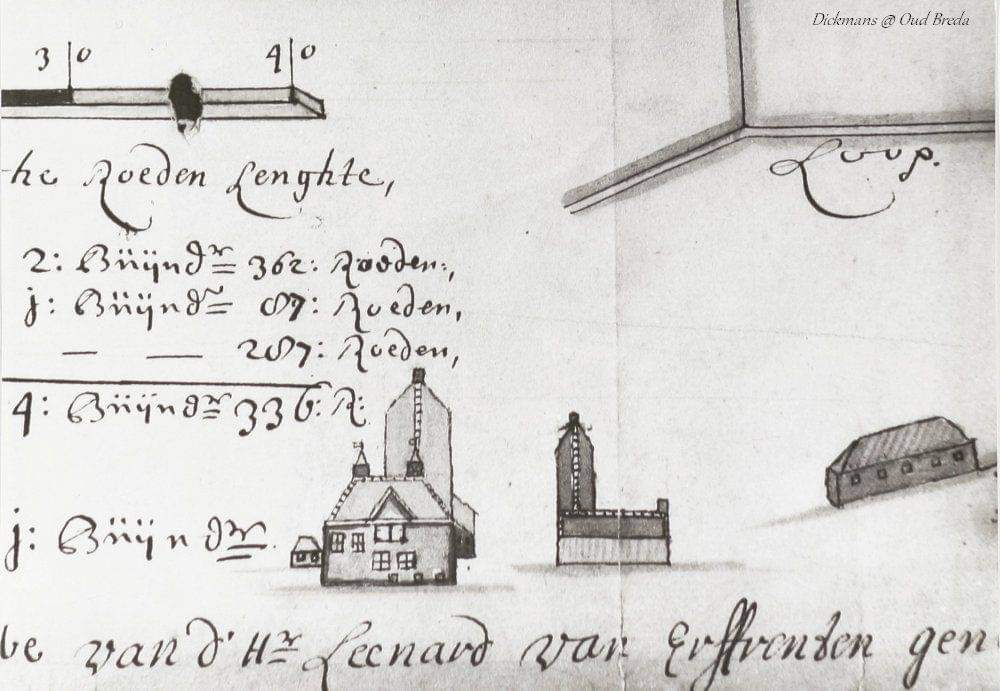 Dickmans @ Oud Breda
3|0 4|0
he Roeden Lenghte,
Loop.
2: Büijndr 362: Roeden,
j: Büijndr 87: Roeden,
— — 287: Roeden,
4: Büijndr 336: R:
j: Büijndr.
be van d' Hr Leenard van gen